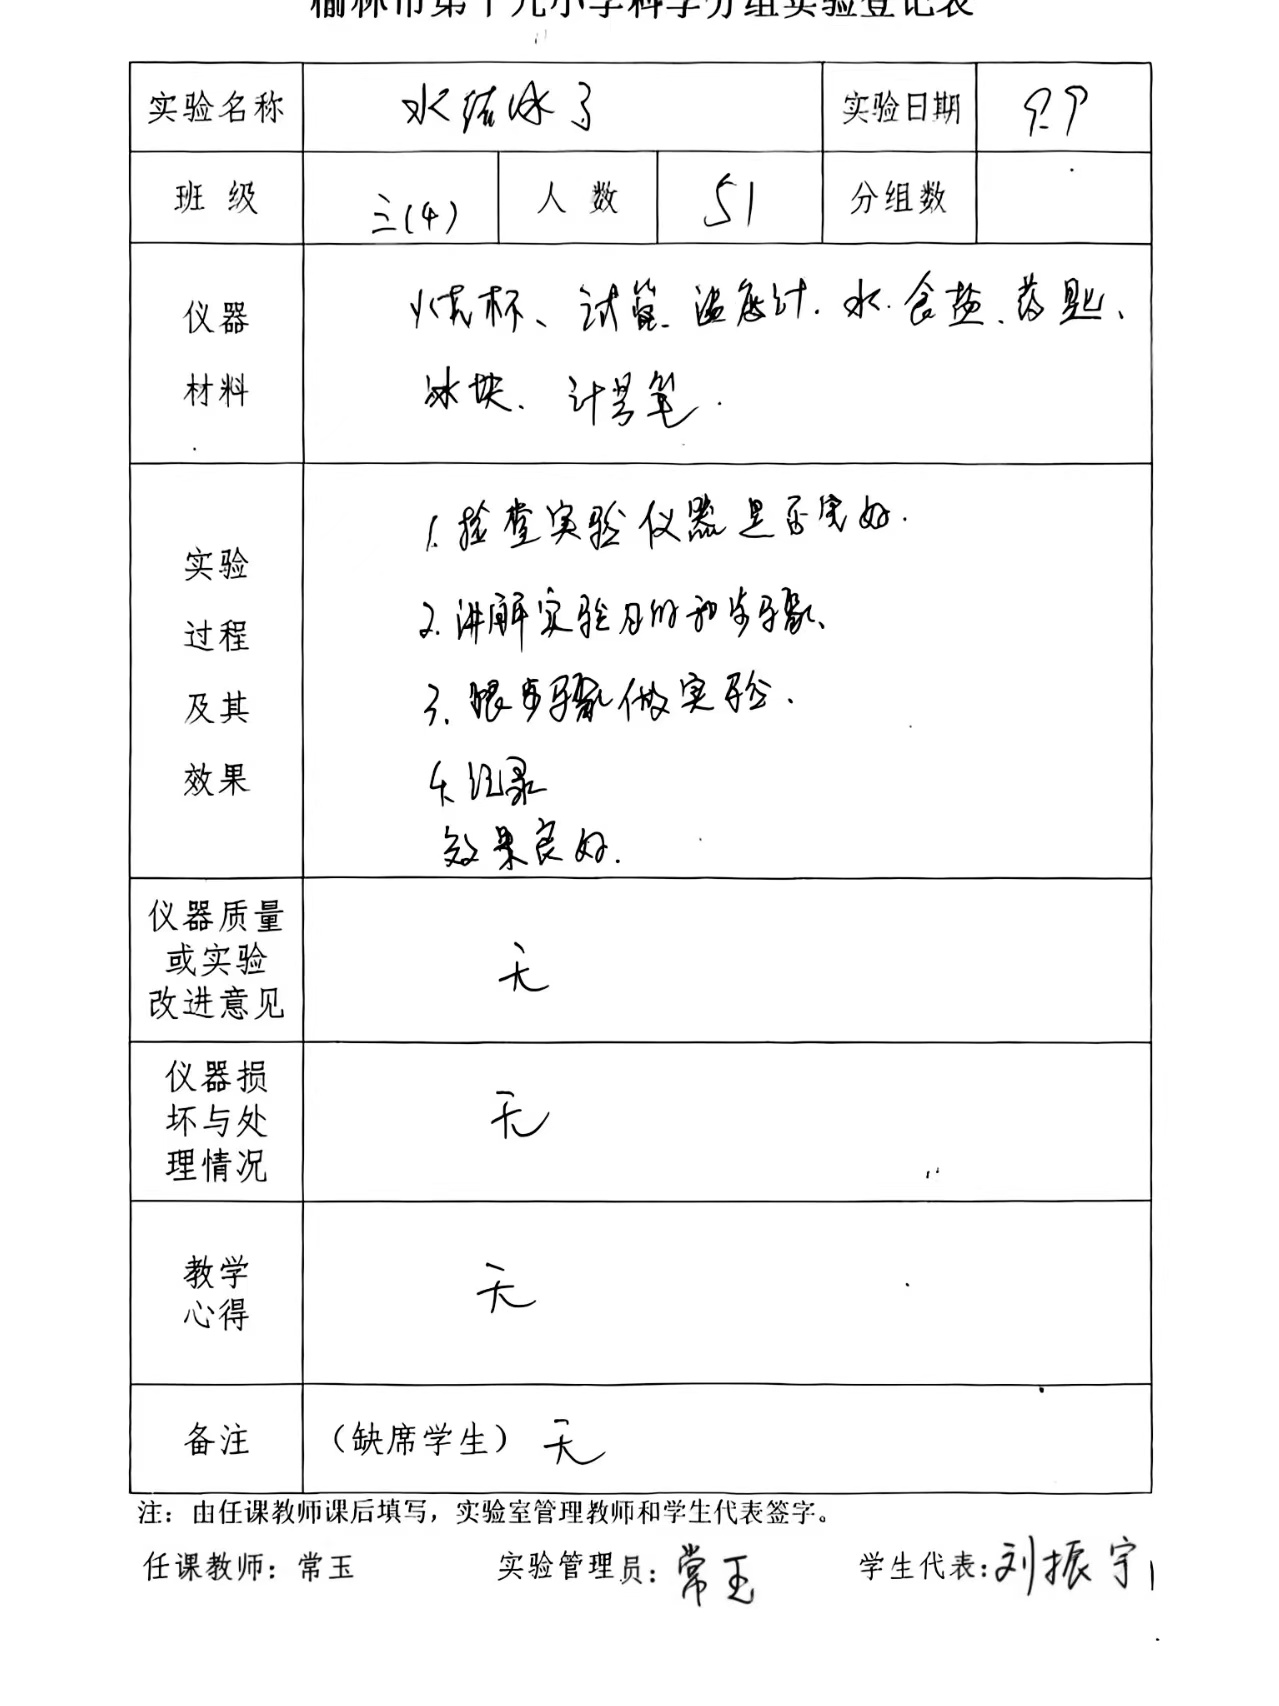 榆林市第十九小学科学分组实验登记表
实验名称 水结冰了 实验日期 9.9
班 级 三(4) 人 数 51 分组数
仪器材料 烧杯、试管、温度计、水、食盐、药匙、
冰块、计号笔.
实验过程及其效果 1.检查实验仪器是否完好.
2.讲解实验目的和步骤、
3.跟步骤做实验.
4.记录
效果良好.
仪器质量或实验改进意见 无
仪器损坏与处理情况 无
教学心得 无
备注 (缺席学生) 无
注：由任课教师课后填写，实验室管理教师和学生代表签字。
任课教师：常玉 实验管理员：常玉 学生代表：刘振宇